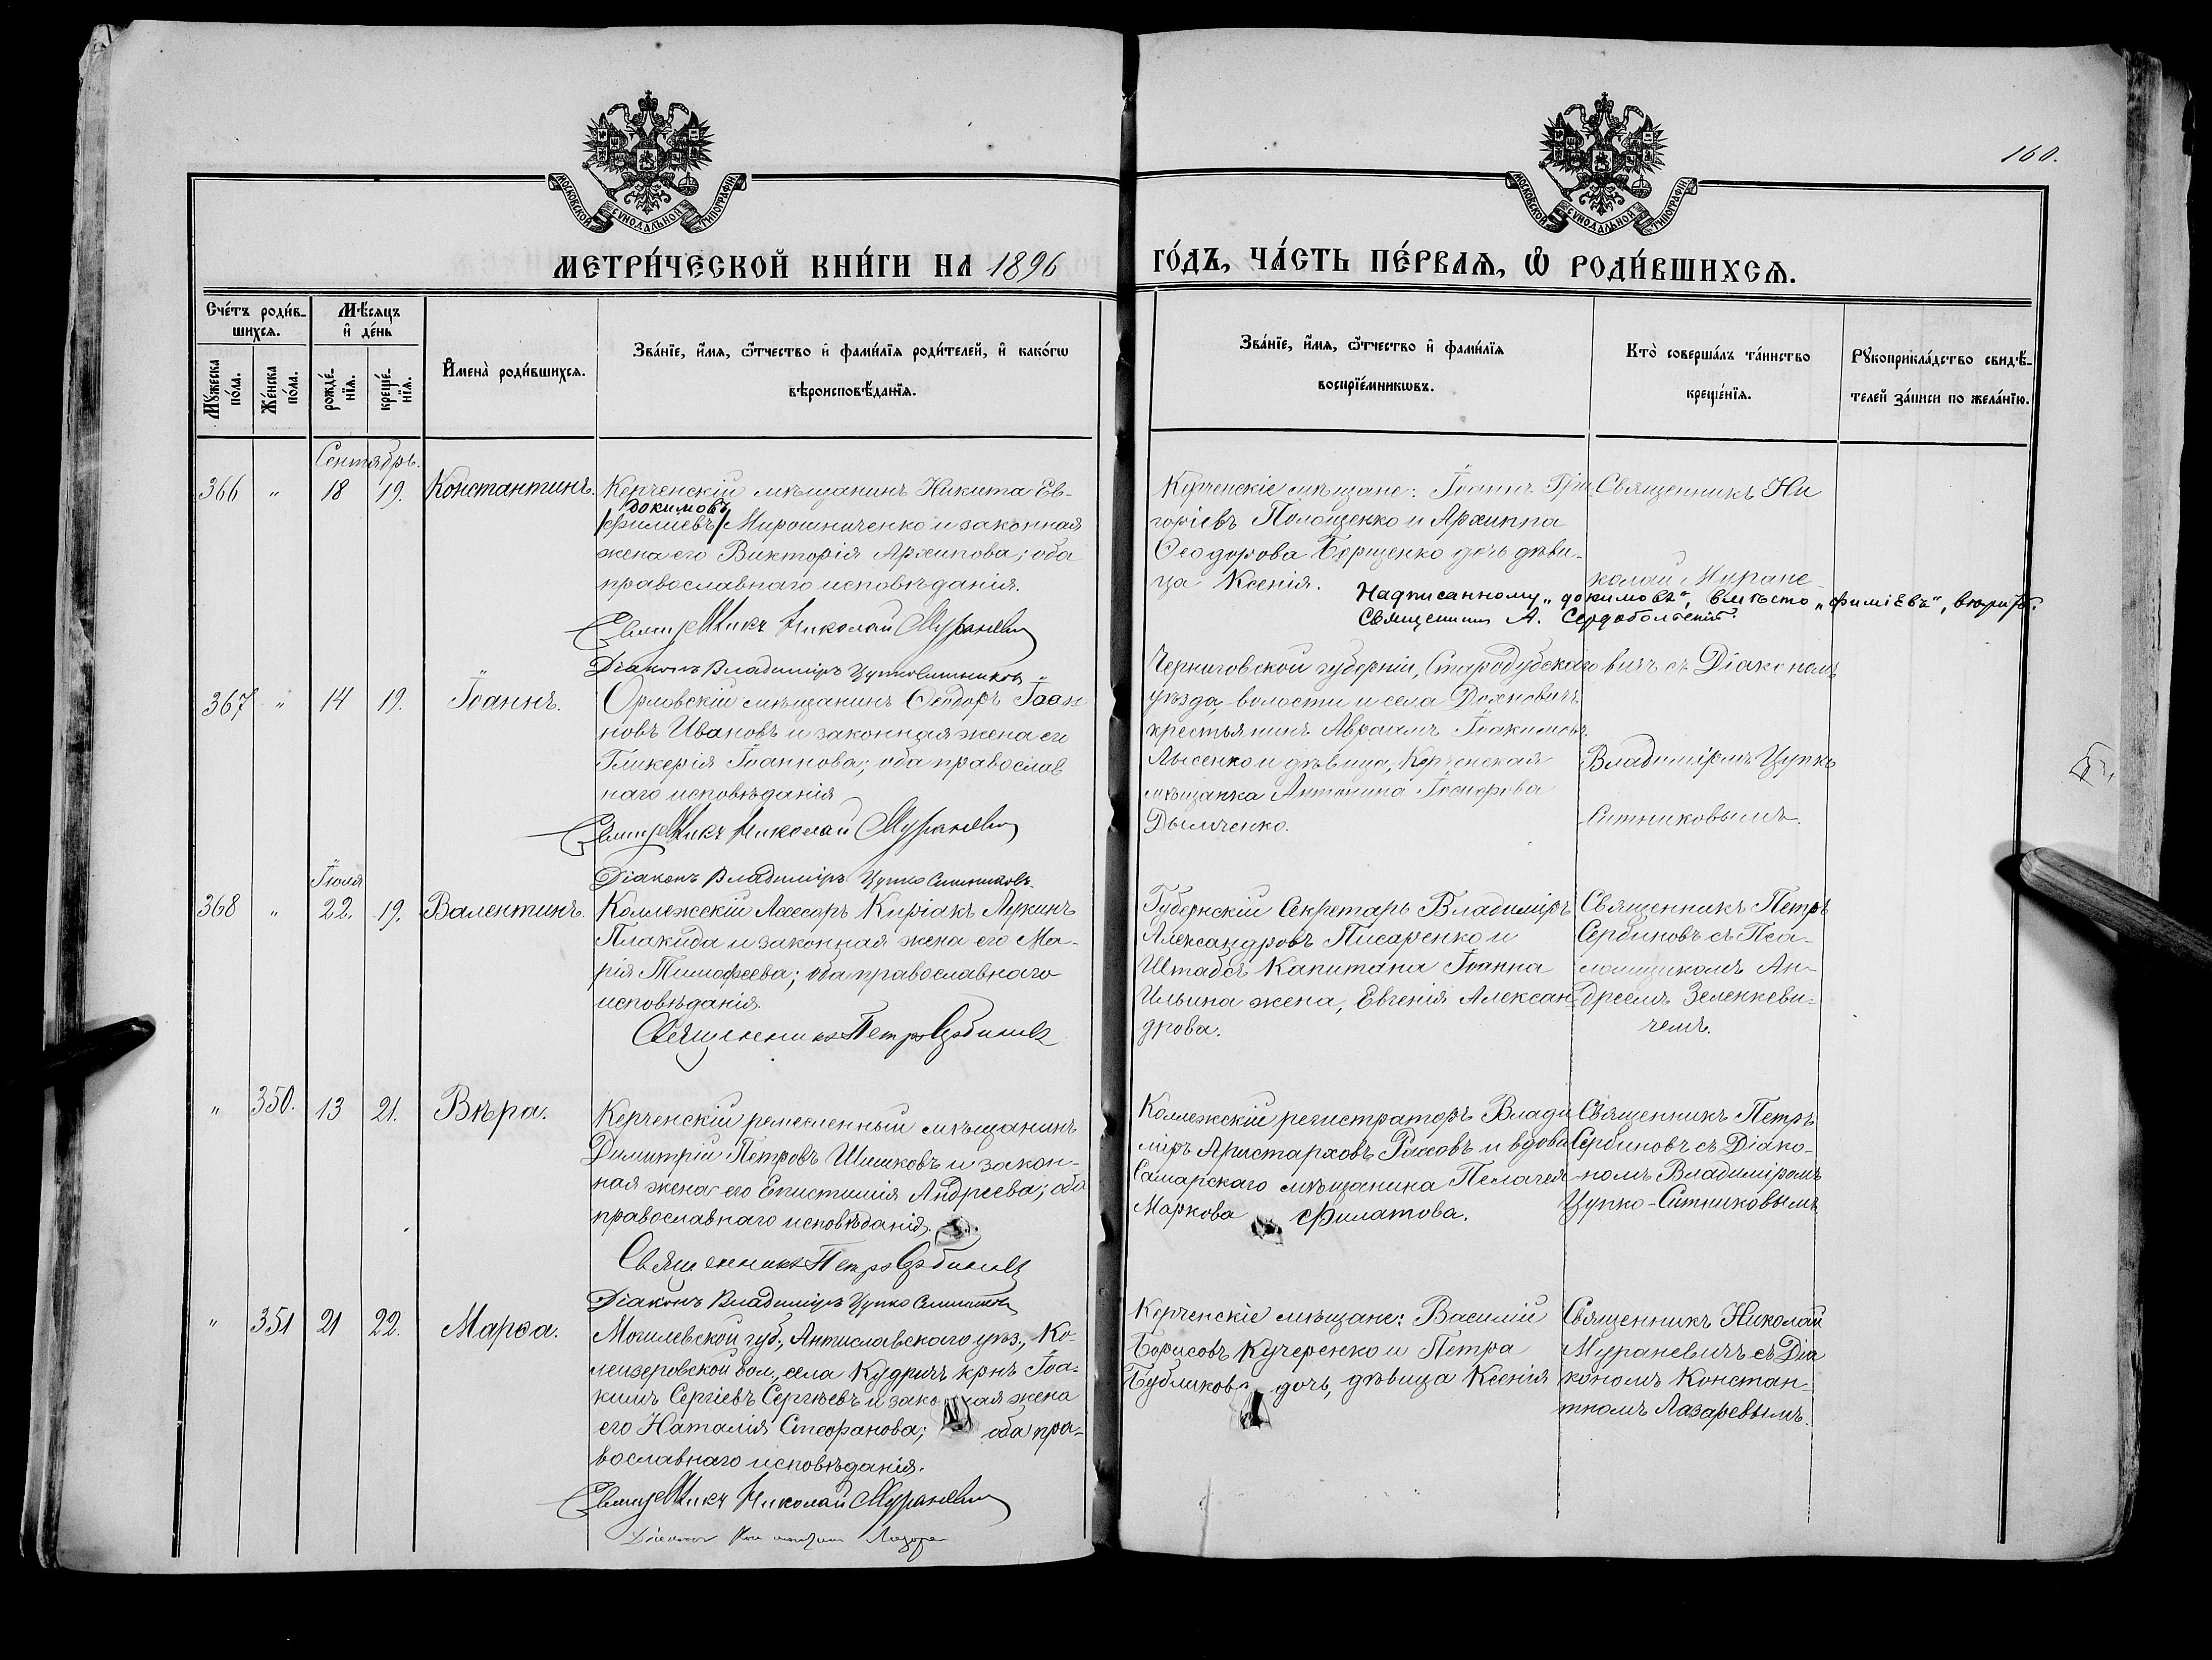 160.
МОСКОВСКОЙ СѴНОДАЛЬНОЙ ТИПОГРАФІИ.
МОСКОВСКОЙ СѴНОДАЛЬНОЙ ТИПОГРАФІИ.
МЕТРИ́ЧЕСКОЙ КНИ́ГИ НА 1896
ГО́ДЪ, ЧА́СТЬ ПЕ́РВАѦ, Ѽ РОДИ́ВШИХСѦ.
Сче́тъ роди́в-
шихсѧ.
Мѣ́сѧцъ
и҆ де́нь
Мꙋ́жеска
по́ла.
Же́нска
по́ла.
рожде́-
нїѧ.
креще́-
нїѧ.
И҆мена̀ роди́вшихсѧ.
Зва́нїе, и҆́мѧ, ѻ҆́тчество и҆ фами́лїѧ роди́телей, и҆ како́гѡ
вѣроисповѣ́данїѧ.
Зва́нїе, и҆́мѧ, ѻ҆́тчество и҆ фами́лїѧ
воспрїе́мникѡвъ.
Кто̀ соверша́лъ та́инство
креще́нїѧ.
Рꙋкоприкла́дство свидѣ́-
телей за́писи по жела́нїю.
Сентябрь.
366 " 18 19. Константинъ.
Керченскій мѣщанинъ Никита Ев-
докимовъ
/фимiевъ/ Мирошниченко и законная
жена его Викторія Архипова; оба
православнаго исповѣданія.
Священникъ Николай Мураневичъ
Діаконъ Владиміръ Цупко Ситниковъ
Керченскіе мѣщане: Іоаннъ Гри-
горіевъ Полощенко и Архиппа
Ѳеодорова Борщенко дочь дѣви-
ца Ксенія.
Надписанному „докимовъ", вмѣсто „фиміевъ", вѣрить.
Священникъ А. Сердобольскій.
Священникъ Ни
колай Муране-
вичъ съ Діакономъ
Владиміромъ Цупко
Ситниковымъ.
367 " 14 19. Іоаннъ.
Орловскій мѣщанинъ Ѳеодоръ Іоан
новъ Ивановъ и законная жена его
Гликерія Іоаннова; оба православ
наго исповѣданія
Священникъ Николай Мураневичъ
Діаконъ Владиміръ Цупко Ситниковъ.
Черниговской губерніи, Стародубскаго
уѣзда, волости и села Дохновичъ
крестьянинъ Авраамъ Іоакимовъ
Лысенко и дѣвица, Керченская
мѣщанка Антонина
Дымченко.
Іюля
368 " 22. 19. Валентинъ.
Коллежскій Ассесоръ Киріакъ Луркинъ
Плакида и законная жена его Ма-
рія Тимофеева; оба православнаго
исповѣданія.
Священникъ Петръ Сербиновъ
Губернскій Секретарь Владиміръ
Александровъ Писаренко и
Штабсъ Капитана Іоанна
Ильина жена, Евгенія Алексан-
дрова.
Священникъ Петръ
Сербиновъ съ Пса-
ломщикомъ Ан-
дреемъ Зеленкеви-
чемъ.
" 350. 13 21. Вѣра.
Керченскій ремесленный мѣщанинъ
Димитрій Петровъ Шишковъ и закон-
ная жена его Епистимія Андреева; оба
православнаго исповѣданія.
Священникъ Петръ Сербиновъ
Діаконъ Владиміръ Цупко Ситниковъ
Коллежскій регистраторъ Влади
міръ Аристарховъ Рассовъ и вдова
Самарскаго мѣщанина Пелагея
Маркова Филатова.
Священникъ Петръ
Сербиновъ съ Діако-
номъ Владиміромъ
Цупко-Ситниковымъ
" 351 21 22. Марѳа.
Могилевской губ., Мстиславскаго уѣз., Ко-
леизеровской вол., села Кудричъ крнъ Іоа-
кимъ Сергіевъ Сергѣевъ и зако ная жена
его Наталія Стефанова; оба пра-
вославнаго исповѣданія.
Священникъ Николай Мураневичъ
Діаконъ Константинъ Лазаре
Керченскіе мѣщане: Василій
Борисовъ Кучеренко и Петра
Бубликова дочь, дѣвица Ксенія
Священникъ Николай
Мураневичъ съ Діа
кономъ Констан-
тиномъ Лазаревымъ.